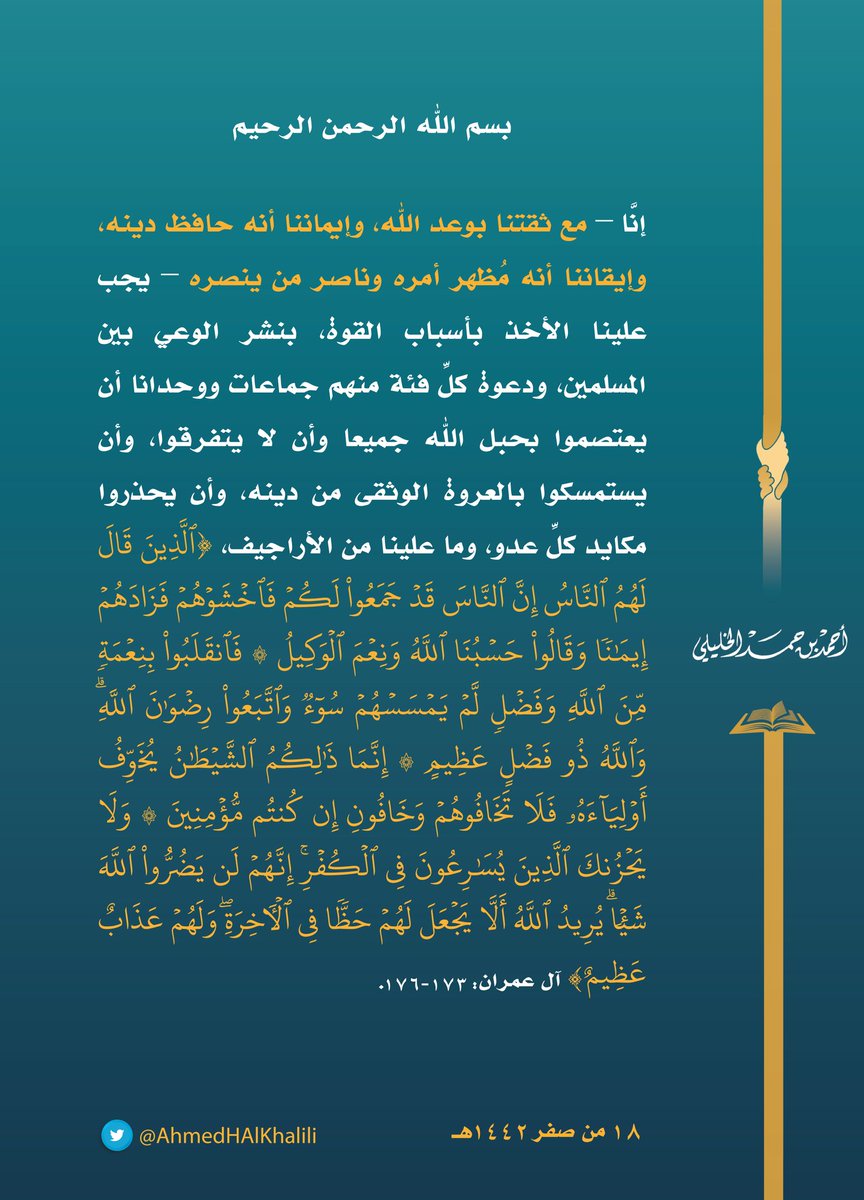 بسم الله الرحمن الرحيم
إنَّا – مع ثقتنا بوعد الله، وإيماننا أنه حافظ دينه،
وإيقاننا أنه مُظهر أمره وناصر من ينصره – يجب
علينا الأخذ بأسباب القوة، بنشر الوعي بين
المسلمين، ودعوة كلِّ فئة منهم جماعات ووحدانا أن
يعتصموا بحبل الله جميعا وأن لا يتفرقوا، وأن
يستمسكوا بالعروة الوثقى من دينه، وأن يحذروا
مكايد كلِّ عدو، وما علينا من الأراجيف، ﴿ٱلَّذِينَ قَالَ
لَهُمُ ٱلنَّاسُ إِنَّ ٱلنَّاسَ قَدۡ جَمَعُواْ لَكُمۡ فَٱخۡشَوۡهُمۡ فَزَادَهُمۡ
إِيمَٰنٗا وَقَالُواْ حَسۡبُنَا ٱللَّهُ وَنِعۡمَ ٱلۡوَكِيلُ ۞ فَٱنقَلَبُواْ بِنِعۡمَةٖ
مِّنَ ٱللَّهِ وَفَضۡلٖ لَّمۡ يَمۡسَسۡهُمۡ سُوٓءٞ وَٱتَّبَعُواْ رِضۡوَٰنَ ٱللَّهِۗ
وَٱللَّهُ ذُو فَضۡلٍ عَظِيمٍ ۞ إِنَّمَا ذَٰلِكُمُ ٱلشَّيۡطَٰنُ يُخَوِّفُ
أَوۡلِيَآءَهُۥ فَلَا تَخَافُوهُمۡ وَخَافُونِ إِن كُنتُم مُّؤۡمِنِينَ ۞ وَلَا
يَحۡزُنكَ ٱلَّذِينَ يُسَٰرِعُونَ فِي ٱلۡكُفۡرِۚ إِنَّهُمۡ لَن يَضُرُّواْ ٱللَّهَ
شَيۡـٔٗاۗ يُرِيدُ ٱللَّهُ أَلَّا يَجۡعَلَ لَهُمۡ حَظّٗا فِي ٱلۡأٓخِرَةِۖ وَلَهُمۡ عَذَابٌ
عَظِيمٌ﴾ آل عمران: ١٧٣-١٧٦.
أحمد بن حمد الخليلي
١٨ من صفر ١٤٤٢هـ
@AhmedHAlKhalili